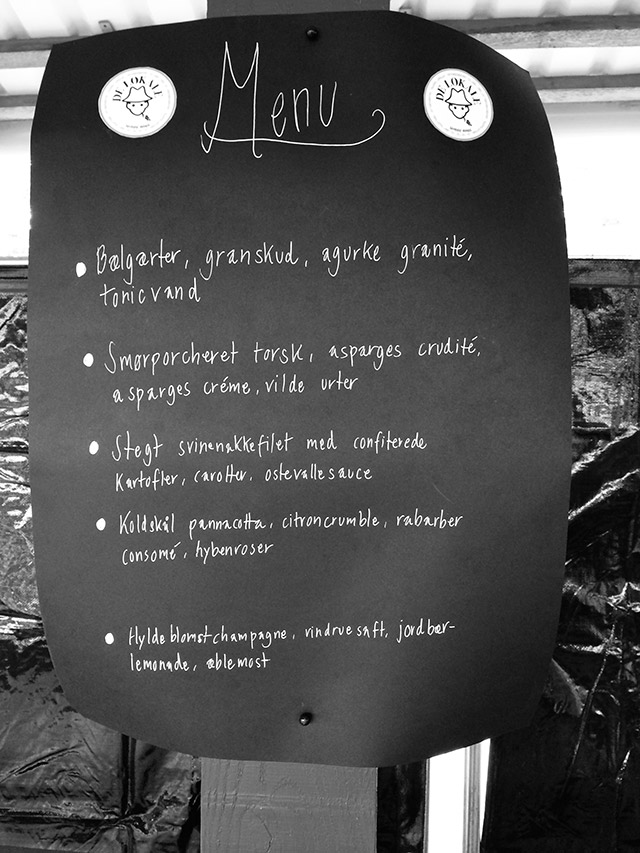 DE LOKALE
Menu
DE LOKALE
• Bælgærter, granskud, agurke granité,
tonicvand
• Smørporcheret torsk, asparges crudité,
asparges créme, vilde urter
• Stegt svinenakkefilet med confiterede
kartofler, carotter, ostevallesauce
• Koldskål pannacotta, citroncrumble, rabarber
consomé, hybenroser
• Hyldeblomstchampagne, vindruesaft, jordbær-
lemonade, æblemost